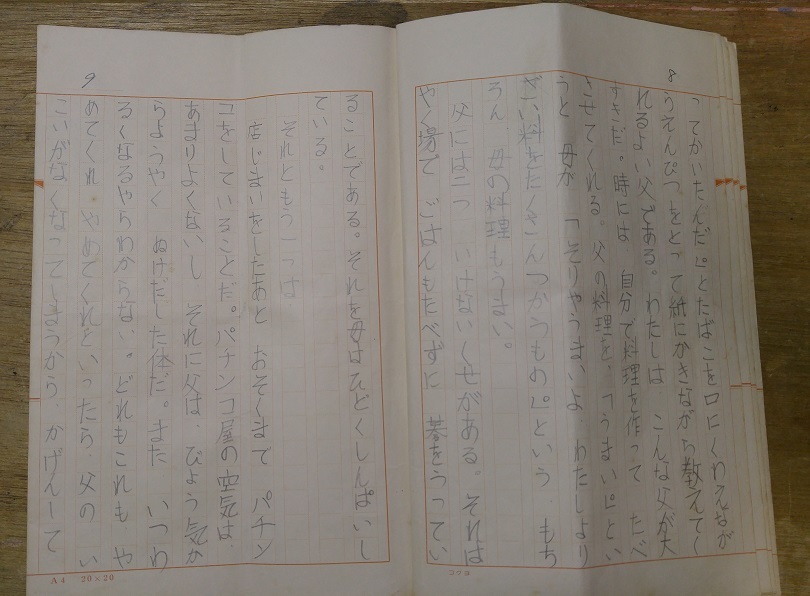 8
ってかいたんだ。」とたばこを口にくわえなが
らうえんぴつをとって紙にかきながら教えてく
れるよい父である。わたしは、こんな父が大
すきだ。時には、自分で料理を作って たべ
させてくれる。父の料理を、「うまい。」とい
うと 母が 「そりゃうまいよ、わたしより
ざい料をたくさんつかうもの。」という、もち
ろん、母の料理もうまい。
父には二つ いけないくせがある。それは
やく場で ごはんもたべずに 碁をうってい
9
ることである。それを母はひどくしんぱいし
ている。
それともう一つは、
店じまいをしたあと おそくまで パチン
コをしていることだ。パチンコ屋の空気は、
あまりよくないし それに父は、びょう気か
らようやく ぬけだした体だ。また いつわ
るくなるやらわからない。どれもこれも や
めてくれ やめてくれといったら、父の い
こいがなくなってしまうから、かげんして
A4 20×20
コクヨ